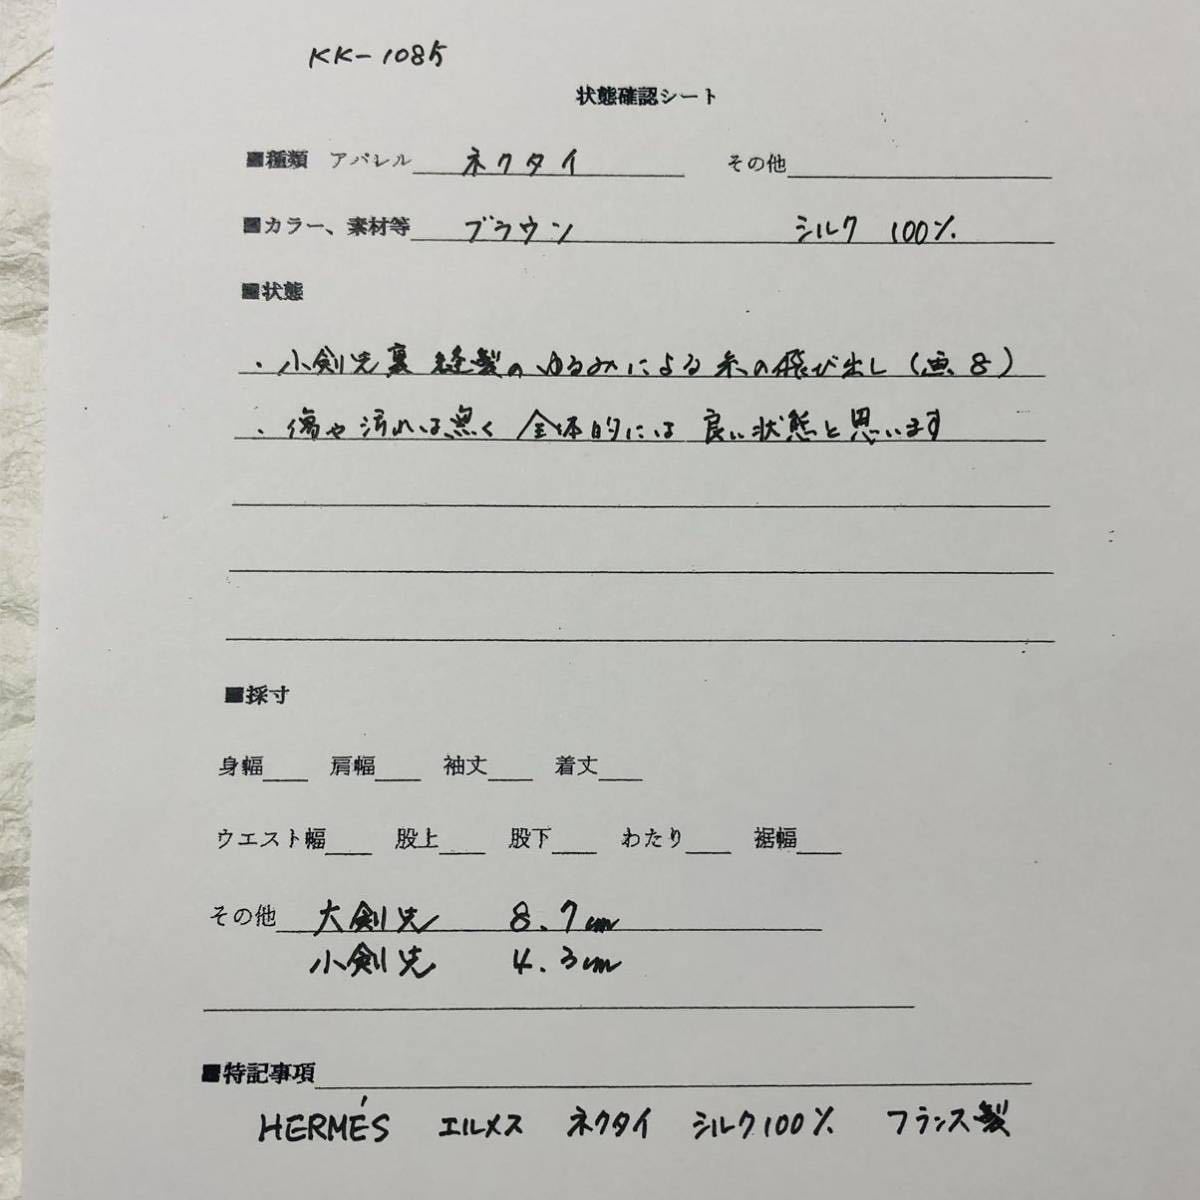 KK-1085
状態確認シート
■種類 アパレル ネクタイ その他
■カラー、素材等 ブラウン シルク 100%
■状態
・小剣先裏 縫製のゆるみによる糸の飛び出し(画8)
・傷や汚れは無く 全体的には 良い状態と思います
■採寸
身幅 肩幅 袖丈 着丈
ウエスト幅 股上 股下 わたり 裾幅
その他 大剣先 8.7cm
小剣先 4.3cm
■特記事項
HERMÉS エルメス ネクタイ シルク100% フランス製